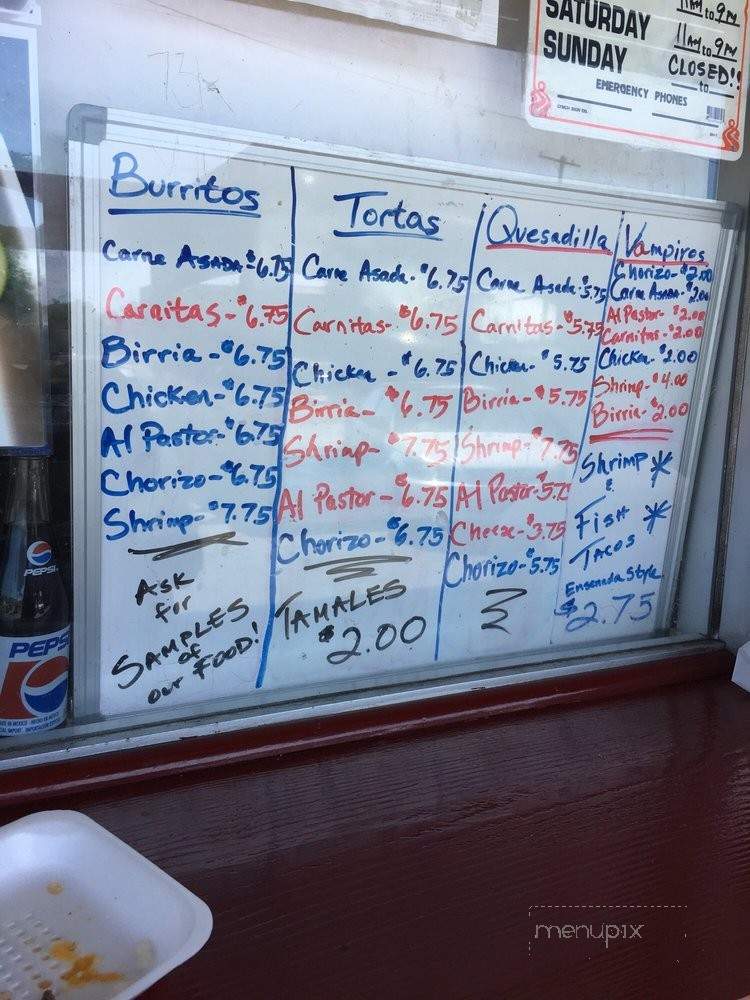 11AM to 9PM
SATURDAY 11AM to 9PM
SUNDAY CLOSED!!
to
EMERGENCY PHONES
Burritos
Carne ASADA-$6.75
Carnitas-$6.75
Birria-$6.75
Chicken-$6.75
Al Pastor-$6.75
Chorizo-$6.75
Shrimp-$7.75
Ask
for
SAMPLES
of
our FOOD!
Tortas
Carne Asada-$6.75
Carnitas-$6.75
Chicken-$6.75
Birria-$6.75
Shrimp-$7.75
Al Pastor-$6.75
Chorizo-$6.75
TAMALES
$2.00
Quesadilla
Carne Asada-$5.75
Carnitas-$5.75
Chicken-$5.75
Birria-$5.75
Shrimp-$7.75
Al Pastor-5.75
Cheese-$3.75
Chorizo-$5.75
Vampiros
Chorizo-$2.00
Carne ASADA-$2.00
Al Pastor-$2.00
Carnitas-$2.00
Chicken-$2.00
Shrimp-$4.00
Birria-$2.00
SHRIMP *
&
FISH *
TACOS
Ensenada Style
$2.75
PEPSI
PEPSI
menupix